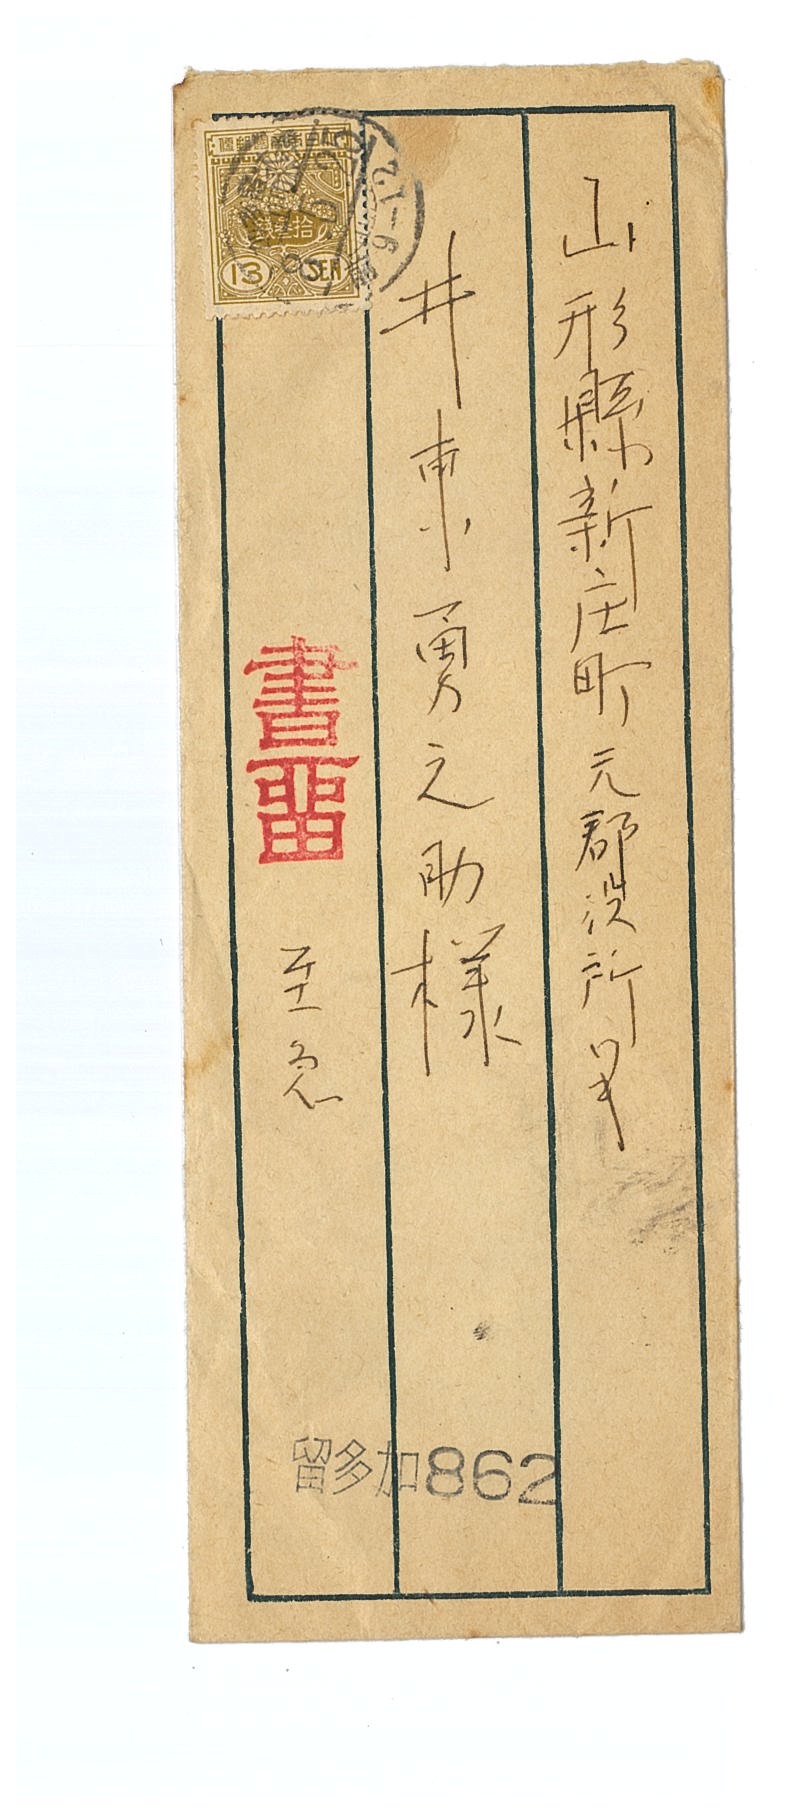 山形縣新庄町元郡役所
井東勇之助様
至急
書留
大日本帝國郵便
拾叁錢
13 SEN
留多加862